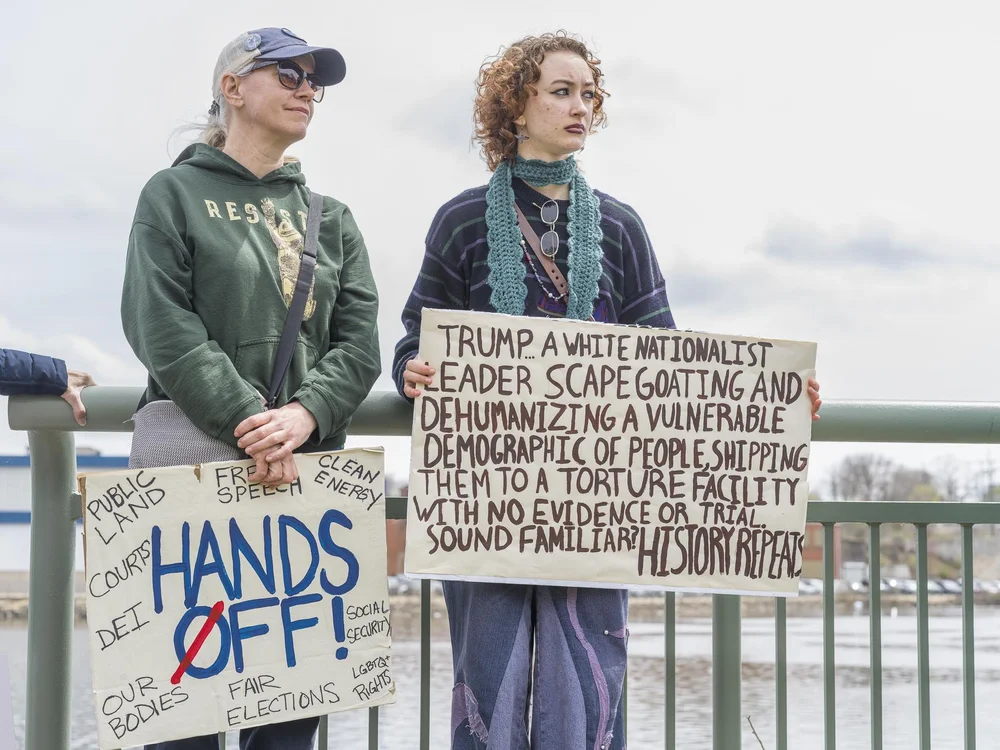 RESIST
PUBLIC
LAND
FREE
SPEECH
CLEAN
ENERGY
COURTS
HANDS
OFF!
DEI
SOCIAL
SECURITY
OUR
BODIES
FAIR
ELECTIONS
LGBTQ+
RIGHTS
TRUMP... A WHITE NATIONALIST
LEADER SCAPEGOATING AND
DEHUMANIZING A VULNERABLE
DEMOGRAPHIC OF PEOPLE, SHIPPING
THEM TO A TORTURE FACILITY
WITH NO EVIDENCE OR TRIAL.
SOUND FAMILIAR? HISTORY REPEATS